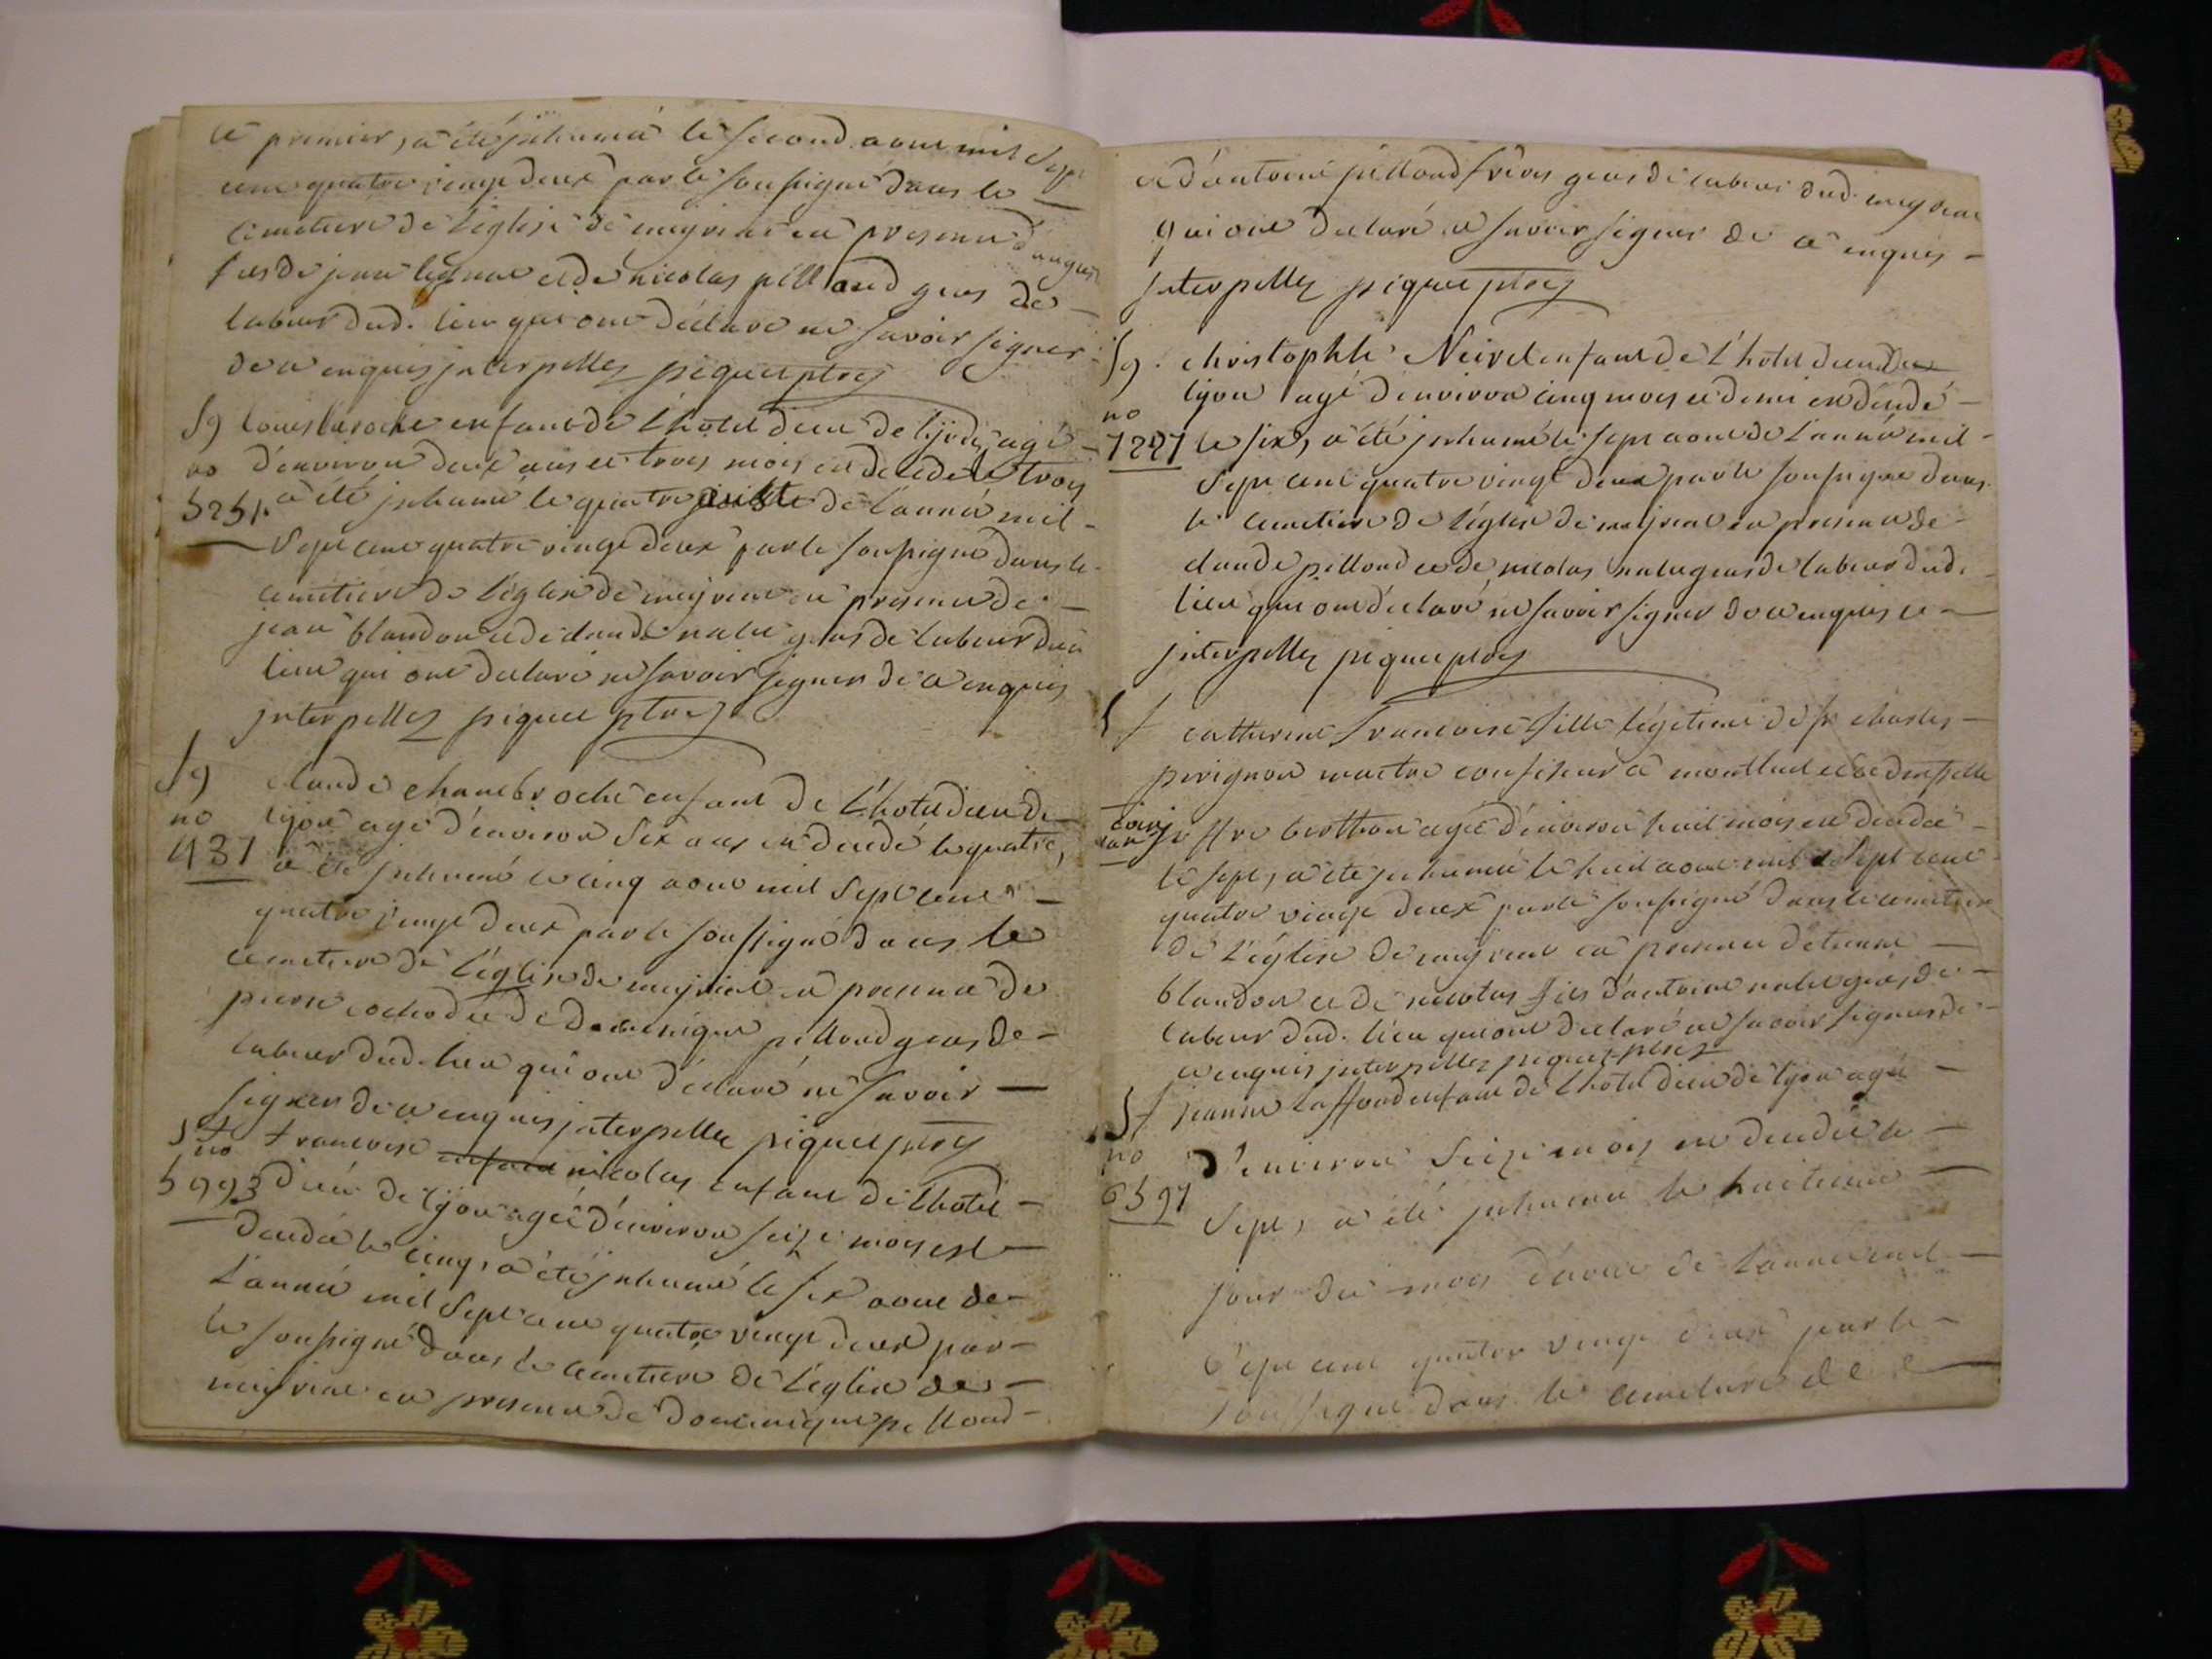 le premier, a été inhumé le second aout mil sept
cent quatre vingt deux par le soussigné dans le
cimetiere de l'église de meyriat en presence d'augus
fils de jean et de nicolas pilloud gens de
labeur dud. lieu qui ont déclaré ne savoir signer
de ce enquis interpellez piquet ptre
Sg louis laroche enfant de l'hotel dieu de lyon, agé
no d'environ deux ans et trois mois en décédé le trois
5251 a été inhumé le quatre de l'année mil
sept cent quatre vingt deux par le soussigné dans le
cimetiere de l'église de meyriat en presence de
jean blandon et de claude nalet gens de labeur dud
lieu qui ont declaré ne savoir signer de ce enquis
interpellez piquet ptre
Sg claude chambroche enfant de l'hotel dieu de
no lyon agé d'environ six ans en décédé le quatre,
437 a été inhumé le cinq aout mil sept cent
quatre vingt deux par le soussigné dans le
cemetiere de l'église de meyriat en presence de
pierre cochod et de dominique pilloud gens de
labeur dud. lieu qui ont déclaré ne savoir
signer de ce enquis interpelle piquet ptre
Sf francoise enfant nicolas enfant de l'hotel
no
5993 dieu de lyon agée d'environ seize mois est
décédée le cinq, a été inhumé le six aout de
l'année mil sept cent quatre vingt deux par
le soussigné dans le cemetiere de l'église de
meyriat en presence de dominique pilloud
et d'antoine pilloud freres gens de labeur dud. meyriat
qui ont declaré ne savoir signer de ce enquis
interpellez piquet ptre
Sg. christophle Neivel enfant de l'hotel dieu de
no lyon agé d'environ cinq mois et demi en décédé
7227 le six, a été inhumé le sept aout de l'année mil
sept cent quatre vingt deux par le soussigné dans
le cemetiere de l'église de meyriat en presence de
claude pilloud et de nicolas nalet gens de labeur dud.
lieu qui ont déclaré ne savoir signer de ce enquis et
interpellez piquet ptre
Sf catherine francoise fille légitime de sr charles
perignon maitre confiseur a montluel et de demselle
berthon agée d'environ huit mois en décédée
le sept, a été inhumée le huit aout mil sept cent
quatre vingt deux par le soussigné dans le cemetiere
de l'église de meyriat en presence d'etienne
blandon et de nicolas fils d'antoine nalet gens de
labeur dud. lieu qui ont declaré ne savoir signer de
ce enquis interpellez piquet ptre
Sf jeanne laffond enfant de l'hotel dieu de lyon agée
no d'environ seize mois en decedée le
6597 sept, a été inhumée le huitieme
jour du mois d'aout de l'année mil
sept cent quatre vingt deux par le
soussigné dans le cemetiere de l